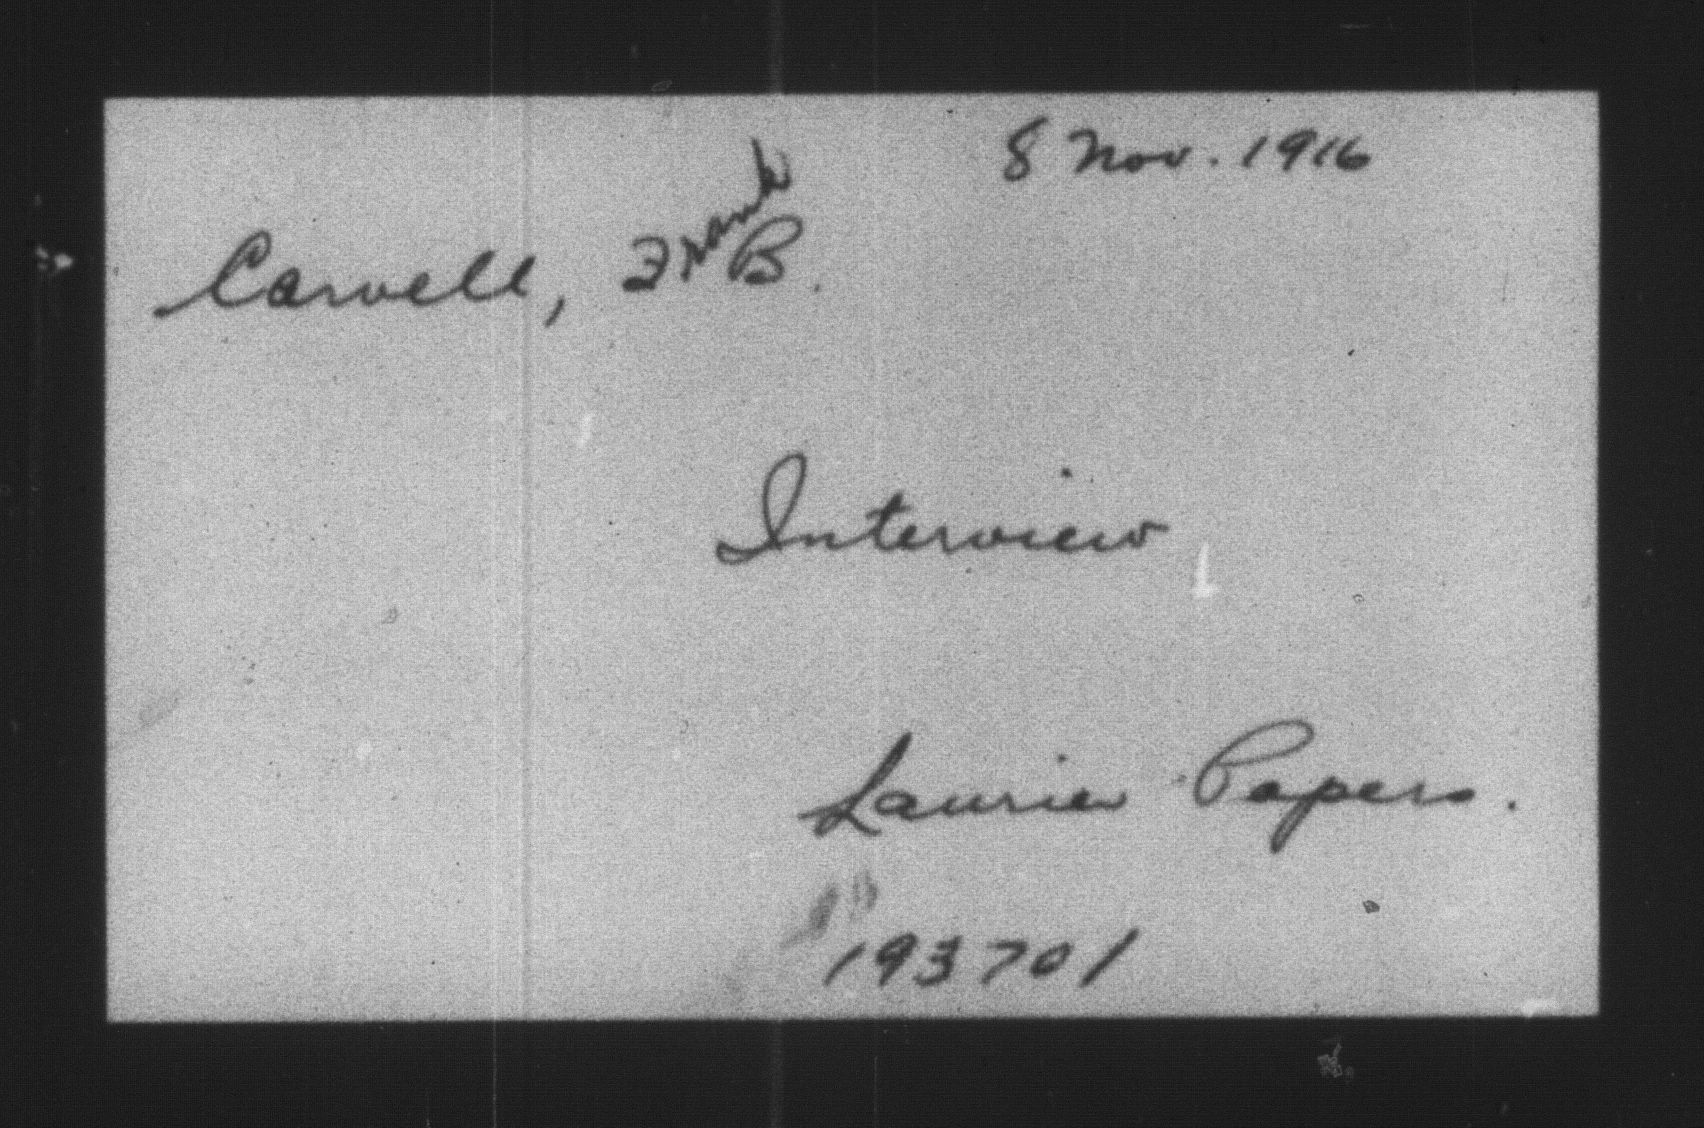 8 Nov. 1916
Carvell, Frank B.
Interview
Laurier Papers.
193701